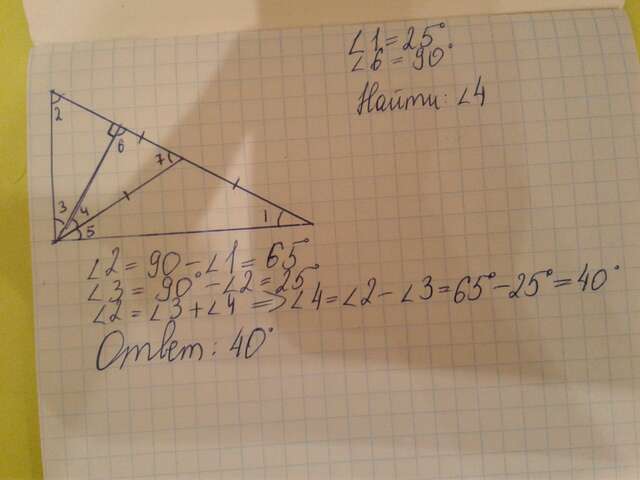 ∠1 = 25°
∠6 = 90°
Найти: ∠4
2
6
7
3
4
5
1
∠2 = 90 - ∠1 = 65°
∠3 = 90° - ∠2 = 25°
∠2 = ∠3 + ∠4 => ∠4 = ∠2 - ∠3 = 65° - 25° = 40°
Ответ: 40°